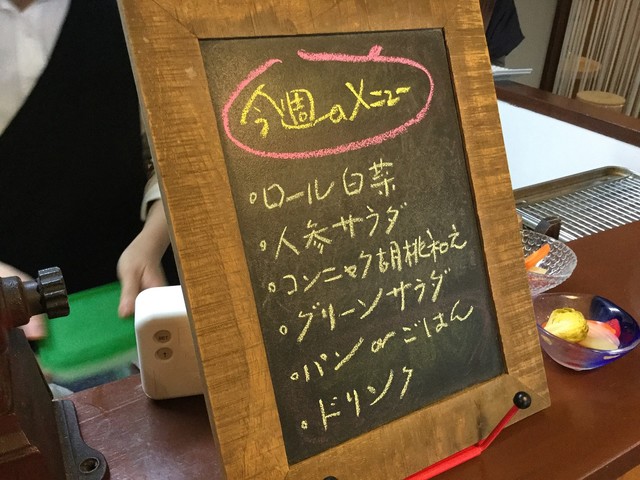 今週のメニュー
・ロール白菜
・人参サラダ
・コンニャク胡桃和え
・グリーンサラダ
・パン or ごはん
・ドリンク